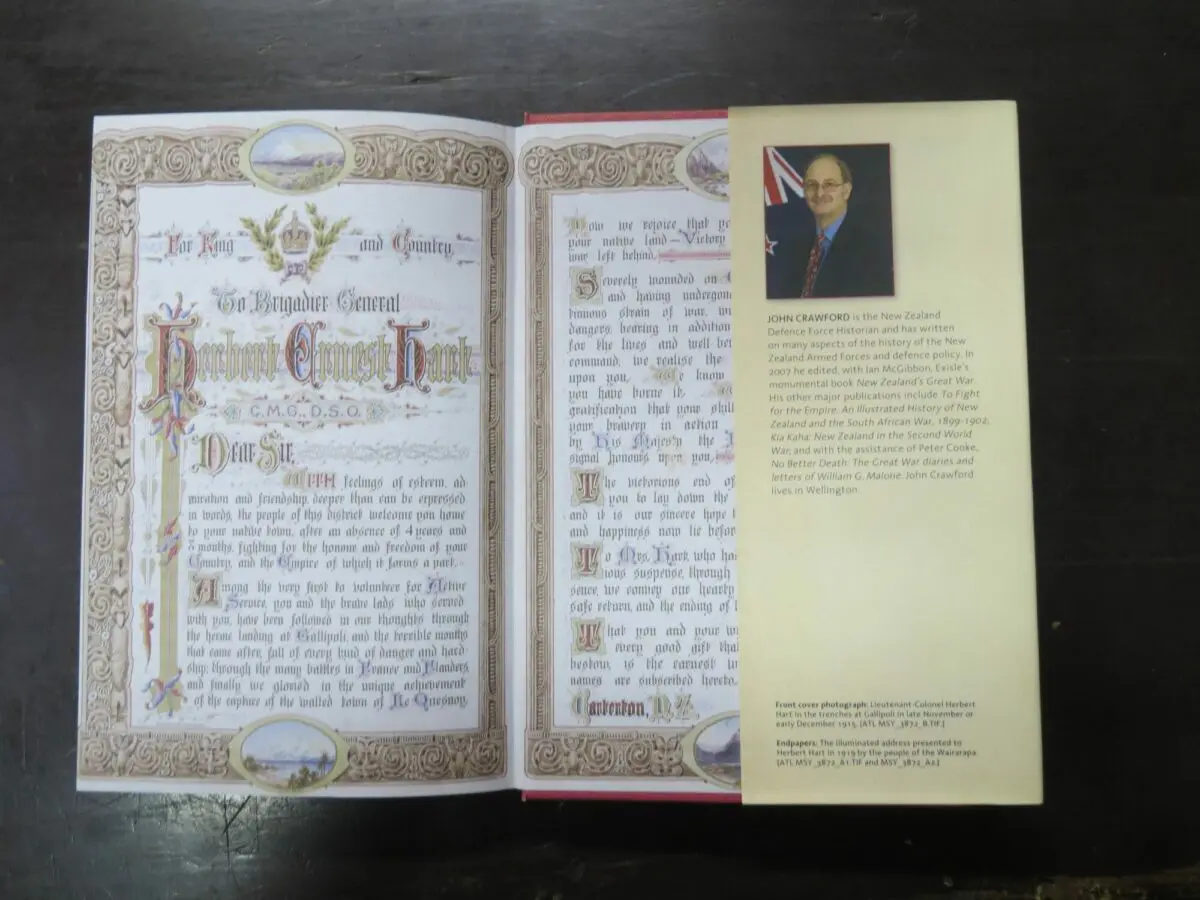 For King and Country,
To Brigadier General
Herbert Ernest Hart
C.M.G., D.S.O.
Dear Sir,
WITH feelings of esteem, ad
miration and friendship, deeper than can be expressed
in words, the people of this district welcome you home
to your native town, after an absence of 4 years and
months, fighting for the honour and freedom of your
Country, and the Empire of which it forms a part.
Among the very first to volunteer for Active
Service, you and the brave lads who served
with you, have been followed in our thoughts through
the heroic landing at Gallipoli, and the terrible months
that came after, full of every kind of danger and hard
ship; through the many battles in France and Flanders,
and finally we gloried in the unique achievement
of the capture of the walled town of Le Quesnoy.
Now we rejoice that
your native land — Victory
war left behind.
Severely wounded on
and having undergon
tinuous strain of war, wi
dangers, bearing in addition
for the lives and well be
command, we realise the
upon you, we know
you have borne it,
gratification that your skil
your bravery in action
by His Majesty the
signal honours upon you,
The victorious end of
you to lay down the
and it is our sincere hope
and happiness now lie befor
To Mrs. Hart, who ha
ious suspense, through
sence, we convey our hearty
safe return, and the ending of
That you and your w
every good gift tha
bestow, is the earnest
names are subscribed hereto.
Carterton, N.Z.
JOHN CRAWFORD is the New Zealand
Defence Force Historian and has written
on many aspects of the history of the New
Zealand Armed Forces and defence policy. In
2007 he edited, with Ian McGibbon, Exisle's
monumental book New Zealand's Great War.
His other major publications include To Fight
for the Empire: An Illustrated History of New
Zealand and the South African War, 1899-1902;
Kia Kaha: New Zealand in the Second World
War; and with the assistance of Peter Cooke,
No Better Death: The Great War diaries and
letters of William G. Malone. John Crawford
lives in Wellington.
Front cover photograph: Lieutenant-Colonel Herbert
Hart in the trenches at Gallipoli in late November or
early December 1915. [ATL MSY_3872_B.TIF.]
Endpapers: The illuminated address presented to
Herbert Hart in 1919 by the people of the Wairarapa.
[ATL MSY_3872_A1.TIF and MSY_3872_A2.]